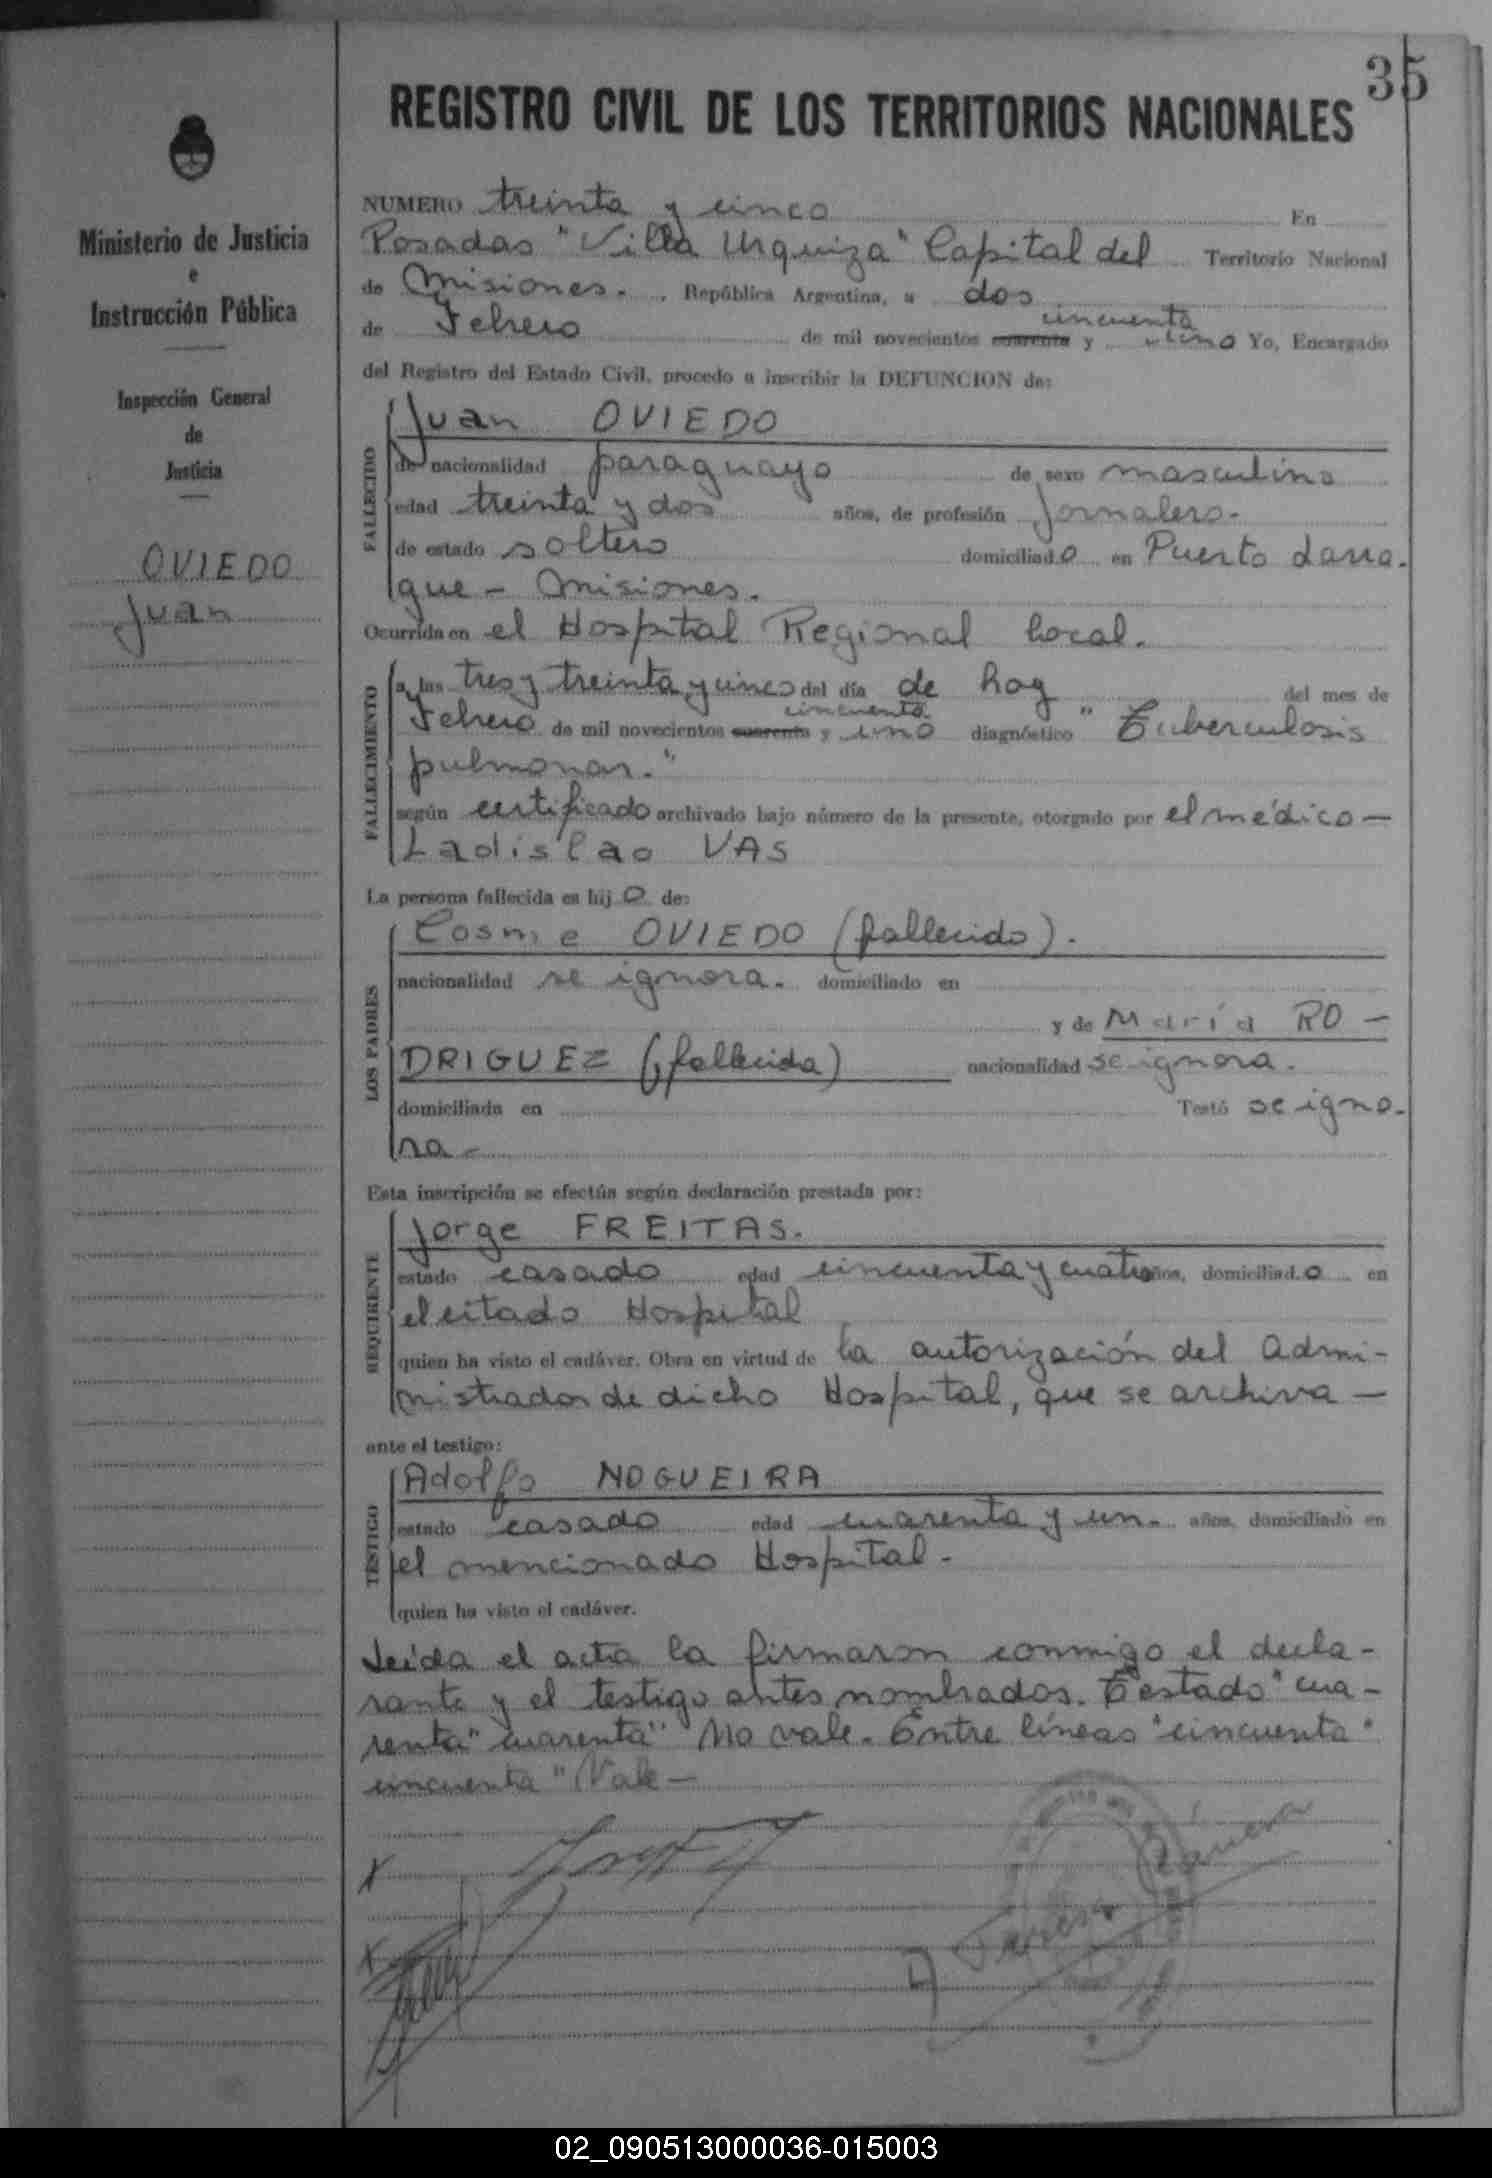 35
REGISTRO CIVIL DE LOS TERRITORIOS NACIONALES
Ministerio de Justicia
e
Instrucción Pública
Inspección General
de
Justicia
OVIEDO
Juan
NUMERO treinta y cinco En
Posadas "Villa Urquiza" Capital del Territorio Nacional
de Misiones. , República Argentina, a dos
cincuenta
de Febrero de mil novecientos cuarenta y uno Yo, Encargado
del Registro del Estado Civil, procedo a inscribir la DEFUNCION de:
FALLECIDO
Juan OVIEDO
de nacionalidad paraguayo de sexo masculino
edad treinta y dos años, de profesión Jornalero.
de estado soltero domiciliado en Puerto Lana.
gue - Misiones.
Ocurrida en el Hospital Regional local.
FALLECIMIENTO
a las tres y treinta y cinco del día de hoy del mes de
cincuenta
Febrero de mil novecientos cuarenta y uno diagnóstico "Tuberculosis
pulmonar."
según certificado archivado bajo número de la presente, otorgado por el médico —
Ladislao VAS
La persona fallecida es hijo de:
LOS PADRES
Cosme OVIEDO (fallecido).
nacionalidad se ignora. domiciliado en
y de María RO -
DRIGUEZ (fallecida) nacionalidad se ignora.
domiciliada en Testó se igno-
ra -
Esta inscripción se efectúa según declaración prestada por:
REQUIRENTE
Jorge FREITAS.
estado casado edad cincuenta y cuatro años, domiciliado en
el citado Hospital
quien ha visto el cadáver. Obra en virtud de la autorización del Admi-
nistrador de dicho Hospital, que se archiva —
ante el testigo:
TESTIGO
Adolfo NOGUEIRA
estado casado edad cuarenta y un. años, domiciliado en
el mencionado Hospital -
quien ha visto el cadáver.
Leída el acta la firmaron conmigo el decla-
rante y el testigo antes nombrados. Testado "cua-
renta" cuarenta" No vale. Entre líneas "cincuenta"
cincuenta" Vale —
X
X
02_090513000036-015003